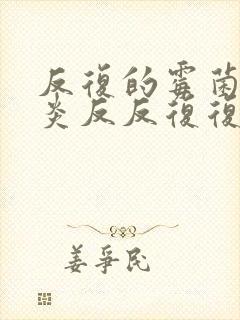 反復的霉菌
炎反反復復
姜爭民